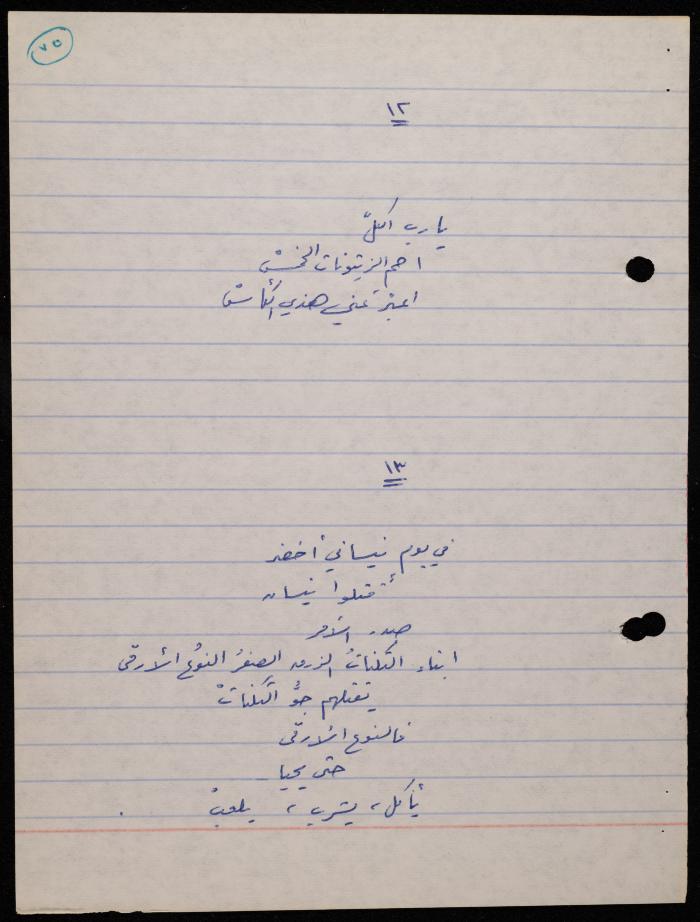 ٧٥
١٢
يا رب الكلّ
احم الزيتونات الخمسْ
اعبرْ عني هذي الكأسْ
١٣
في يوم نيساني أخضر
قتلوا نيسان
صدر الأمر
ابناء الثكناتُ الزرق الصفرُ النوع الأرقى
تقتلهم جوُّ الثكناتْ
فالنوع الأرقى
حتى يحيا
يأكل، يشرب، يلعبْ